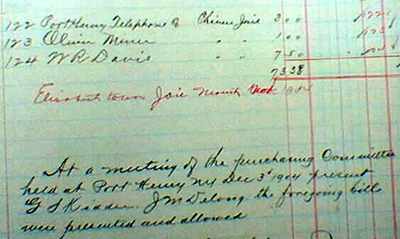 122 Port Henry Telephone Co Chinese Jail 3 00
123 Oliver " " 1 00
124 W R Davis " " 7 50
73 38
Elizabethtown Jail Month Nov 1904
At a meeting of the purchasing Committee
held at Port Henry NY Dec 3' 1904 present
G S Kidder. J M Delong the foregoing bill
were presented and allowed